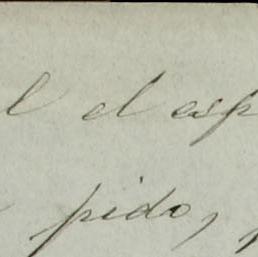 l el esp
pido,